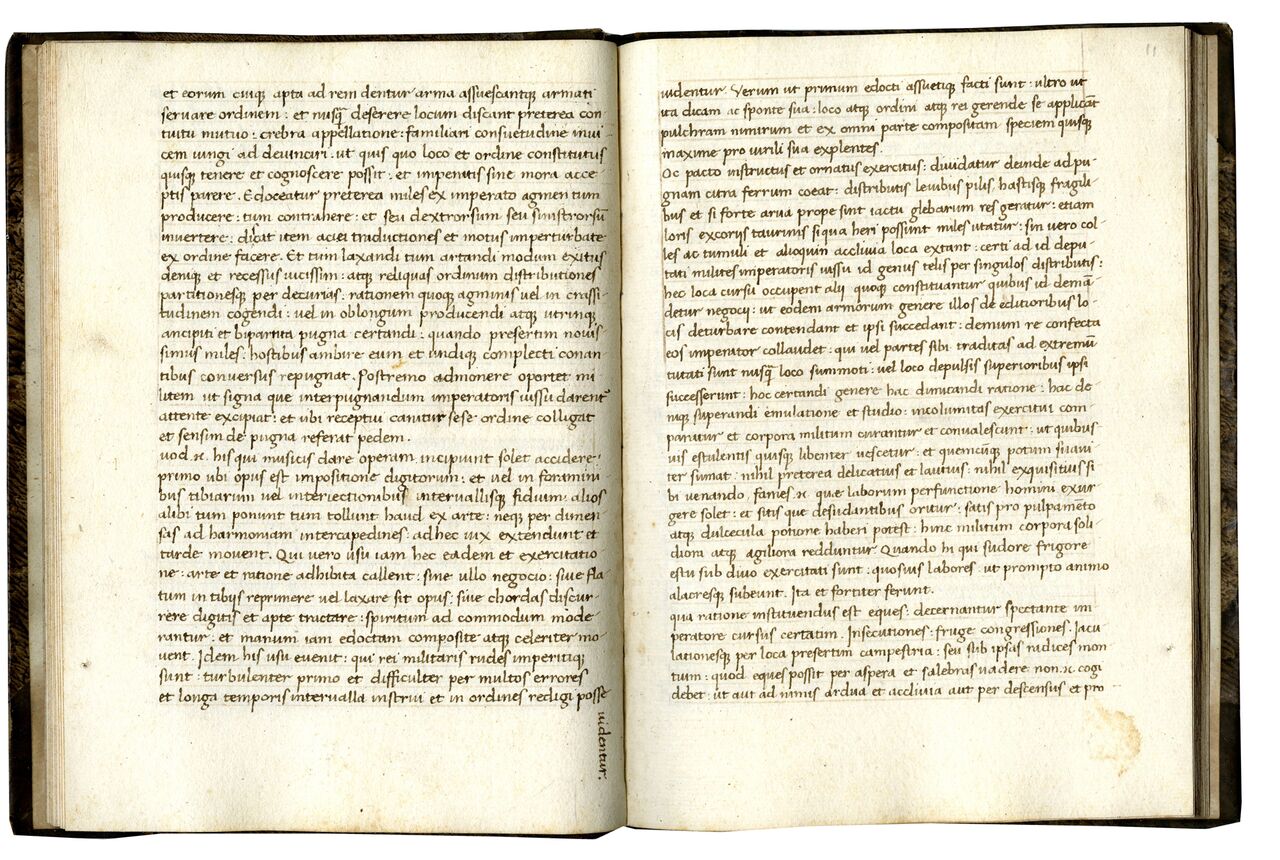 et eorum cuiq apta ad rem dentur arma assuescantq armati
servare ordinem : et nusq̃ deserere locum discant preterea con
tuitu mutuo : crebra appellatione : familiari consuetudine invi
cem iungi ad devinciri . ut quis quo loco et ordine constitutus
quisq tenere et cognoscere possit : et imperitis sine mora acce-
ptis parere . Edoceatur preterea miles ex imperato agmen tum
producere : tum contrahere : et seu dextrorsum seu sinistrorsũ
invertere : discat item aciei traductiones et motus imperturbate
ex ordine facere . Et tum laxandi tum artandi modum exitus
denique et recessus vicissim : atq reliquas ordinum distributiones
partitionesq per decurias : rationem quoq agminis vel in crassi-
tudinem cogendi : vel in oblongum producendi atq utrinq
ancipiti et bipartita pugna certandi : quando presertim novis
simus miles : hostibus ambire eum et undiq complecti conan
tibus conversus repugnat . Postremo admonere oportet mi-
litem ut signa que interpugnandum imperatoris iussu darent᷑
attente excipiat : et ubi receptui canitur sese ordine colligat
et sensim de pugna referat pedem .
uod .n. his qui musicis dare operam incipiunt solet accidere :
primo ubi opus est impositione digitorum : et vel in foramini
bus tibiarum vel interiectionibus intervallisq fidium : alios
alibi tum ponunt tum tollunt haud ex arte : neq per dimen-
sas ad harmoniam intercapedines : ad hec vix extendunt et
tarde movent . Qui vero usu iam hec eadem et exercitatio-
ne : arte et ratione adhibita callent : sine ullo negocio : sive fla
tum in tibijs reprimere vel laxare sit opus : sive chordas discur
rere digitis et apte tractare : spiritum ad commodum mode
rantur : et manum iam edoctam composite atq celeriter mo-
vent . Idem his usu evenit : qui rei militaris rudes imperitiq
sunt : turbulenter primo et difficulter per multos errores
et longa temporis intervalla instrui et in ordines redigi posse
videntur .
11
videntur . Verum ut primum edocti assuetiq facti sunt : ultro ut
ita dicam ac sponte sua : loco atq ordini atq rei gerende se applicãt
pulchram nimirum et ex omni parte compositam speciem quisq
maxime pro virili sua explentes .
Oc pacto instructus et ornatus exercitus : dividatur deinde ad pu-
gnam citra ferrum coeat : distributis levibus pilis hastisq fragili-
bus et si forte arva prope sint iactu glebarum res geratur : etiam
loris ex corijs taurinis si qua heri possint miles utatur : sin vero col-
les ac tumuli et alioquin acclivia loca extant : certi ad id depu-
tati milites imperatoris iussu id genus telis per singulos distributis :
hec loca cursu occupent alij quoq constituantur quibus id demã
detur negocij : ut eodem armorum genere illos de editioribus lo-
cis deturbare contendant et ipsi succedant : demum re confecta
eos imperator collaudet : qui vel partes sibi traditas ad extremũ
tutati sunt nusq̃ loco summoti : vel loco depulsis superioribus ipsi
successerunt : hoc certandi genere hac dimicandi ratione : hac de-
niq superandi emulatione et studio : incolumitas exercitui com-
paratur et corpora militum curantur et convalescunt : ut quibus
vis esculentis quisq libenter vescetur : et quemcũq potum suavi
ter sumat : nihil preterea delicatius et lautius : nihil exquisitius si
bi venando . fames .n. quæ laborum perfunctione homini exur
gere solet : et sitis que desudantibus oritur : satis pro pulpamẽto
atq dulcecula potione haberi potest : hinc militum corpora soli-
diora atq agiliora redduntur Quando hi qui sudore frigore
estu sub divo exercitati sunt : quosvis labores . ut prompto animo
alacresq subeunt . Ita et fortiter ferunt .
qua ratione instituendus est eques : decernantur spectante im
peratore cursus certatim . Insecutiones : fruge congressiones . Iacu
lationesq per loca presertim campestria : seu sub ipsas radices mon
tium : quod eques possit per aspera et salebras vadere non .n. cogi
debet : ut aut ad nimis ardua et acclivia aut per descensus et pro